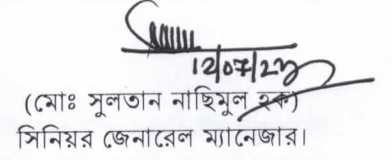 12/07/23
(মোঃ সুলতান নাছিমুল হক)
সিনিয়র জেনারেল ম্যানেজার।